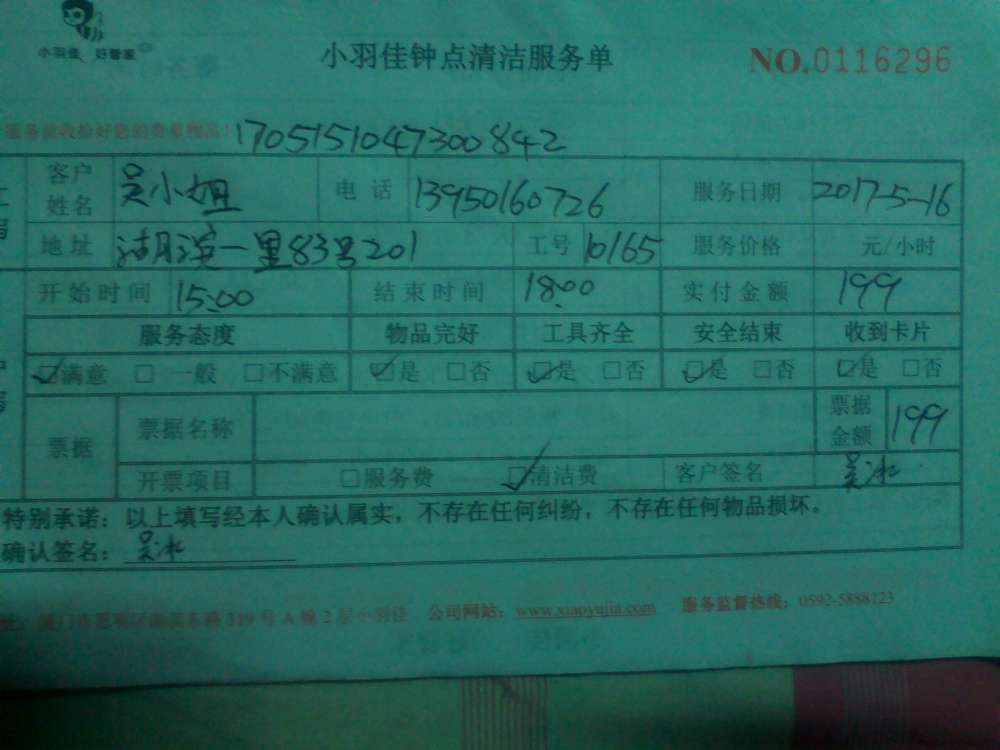 小羽佳 好管家
小羽佳钟点清洁服务单
NO.0116296
服务前收拾好您的贵重物品!
1705151047300842
客户姓名 吴小姐 电话 13950160726 服务日期 2017-5-16
地址 湖滨一里83号201 工号 10165 服务价格 元/小时
开始时间 15:00 结束时间 18:00 实付金额 199
服务态度 物品完好 工具齐全 安全结束 收到卡片
☑满意 □一般 □不满意 ☑是 □否 ☑是 □否 ☑是 □否 ☑是 □否
票据 票据名称 票据金额 199
开票项目 □服务费 ☑清洁费 客户签名 吴冰
特别承诺：以上填写经本人确认属实，不存在任何纠纷，不存在任何物品损坏。
确认签名：吴冰
319号A幢2层小羽佳 公司网站：www.xiaoyujia.com 服务监督热线：0592-5888123